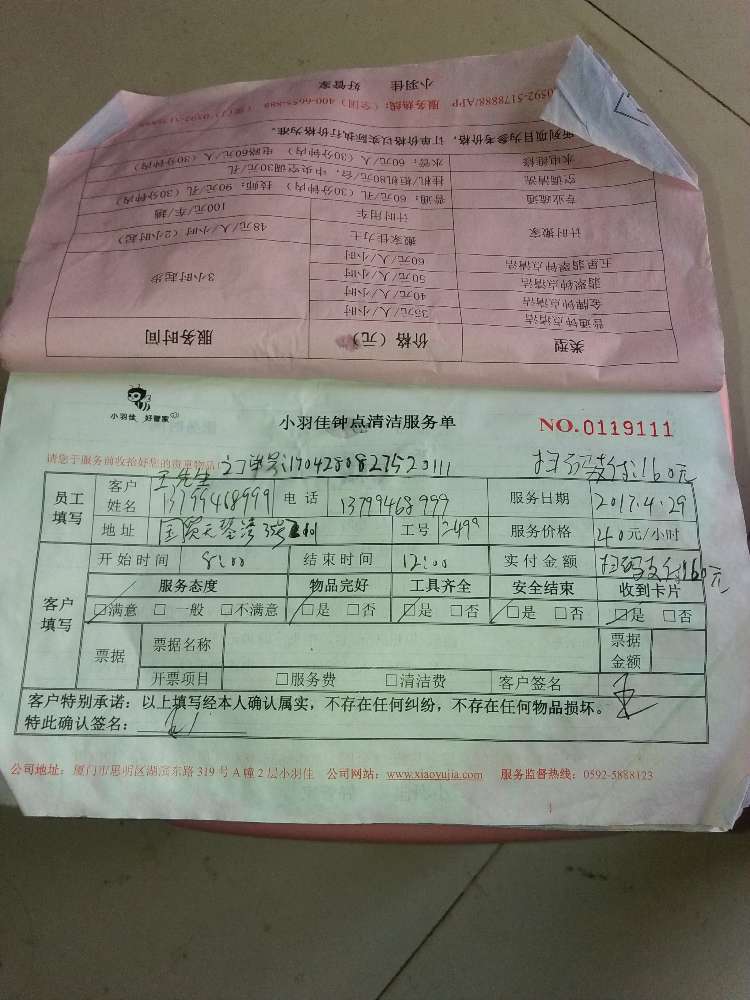 小羽佳 好管家
服务热线：（全国）400-6655-889
所列项目为参考价格，订单价格以实际执行价格为准。
水电维修 水管：60元/人（30分钟内） 电路60元/人（30分钟内）
空调清洗 挂机/柜机80元/台，中央空调30元/孔
专业疏通 普通：60元/孔（30分钟内） 技师：90元/孔（30分钟内）
计时搬家 计时用车 100元/车/趟
搬家佳力士 48元/人/小时（2小时起）
五星翡翠钟点清洁 60元/人/小时
翡翠钟点清洁 50元/人/小时 3小时起步
金牌钟点清洁 40元/人/小时
普通钟点清洁 35元/人/小时
类型 价格（元） 服务时间
小羽佳 好管家
小羽佳钟点清洁服务单 NO.0119111
请您于服务前收拾好您的贵重物品！ 订单号:17042808273520111 扫码支付:160元
员工填写 客户姓名 王先生 13799468999 电话 13799468999 服务日期 2017.4.29
地址 国贸天琴湾 工号 2499 服务价格 40元/小时
客户填写 开始时间 8:00 结束时间 12:00 实付金额 扫码支付160元
服务态度 物品完好 工具齐全 安全结束 收到卡片
□满意 □一般 □不满意 □是 □否 □是 □否 □是 □否 □是 □否
票据 票据名称 票据金额
开票项目 □服务费 □清洁费 客户签名 王
客户特别承诺：以上填写经本人确认属实，不存在任何纠纷，不存在任何物品损坏。
特此确认签名：
公司地址：厦门市思明区湖滨东路319号A幢2层小羽佳 公司网站：www.xiaoyujia.com 服务监督热线：0592-5888123